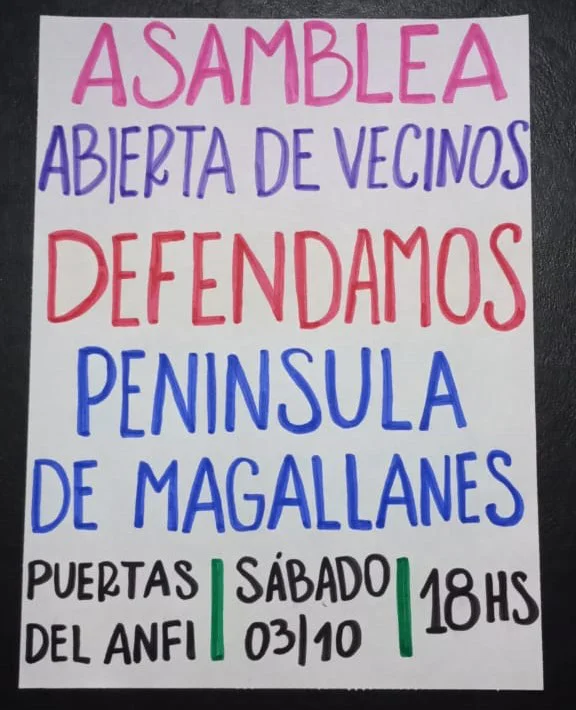 ASAMBLEA
ABIERTA DE VECINOS
DEFENDAMOS
PENINSULA
DE MAGALLANES
PUERTAS
DEL ANFI
SÁBADO
03/10
18HS